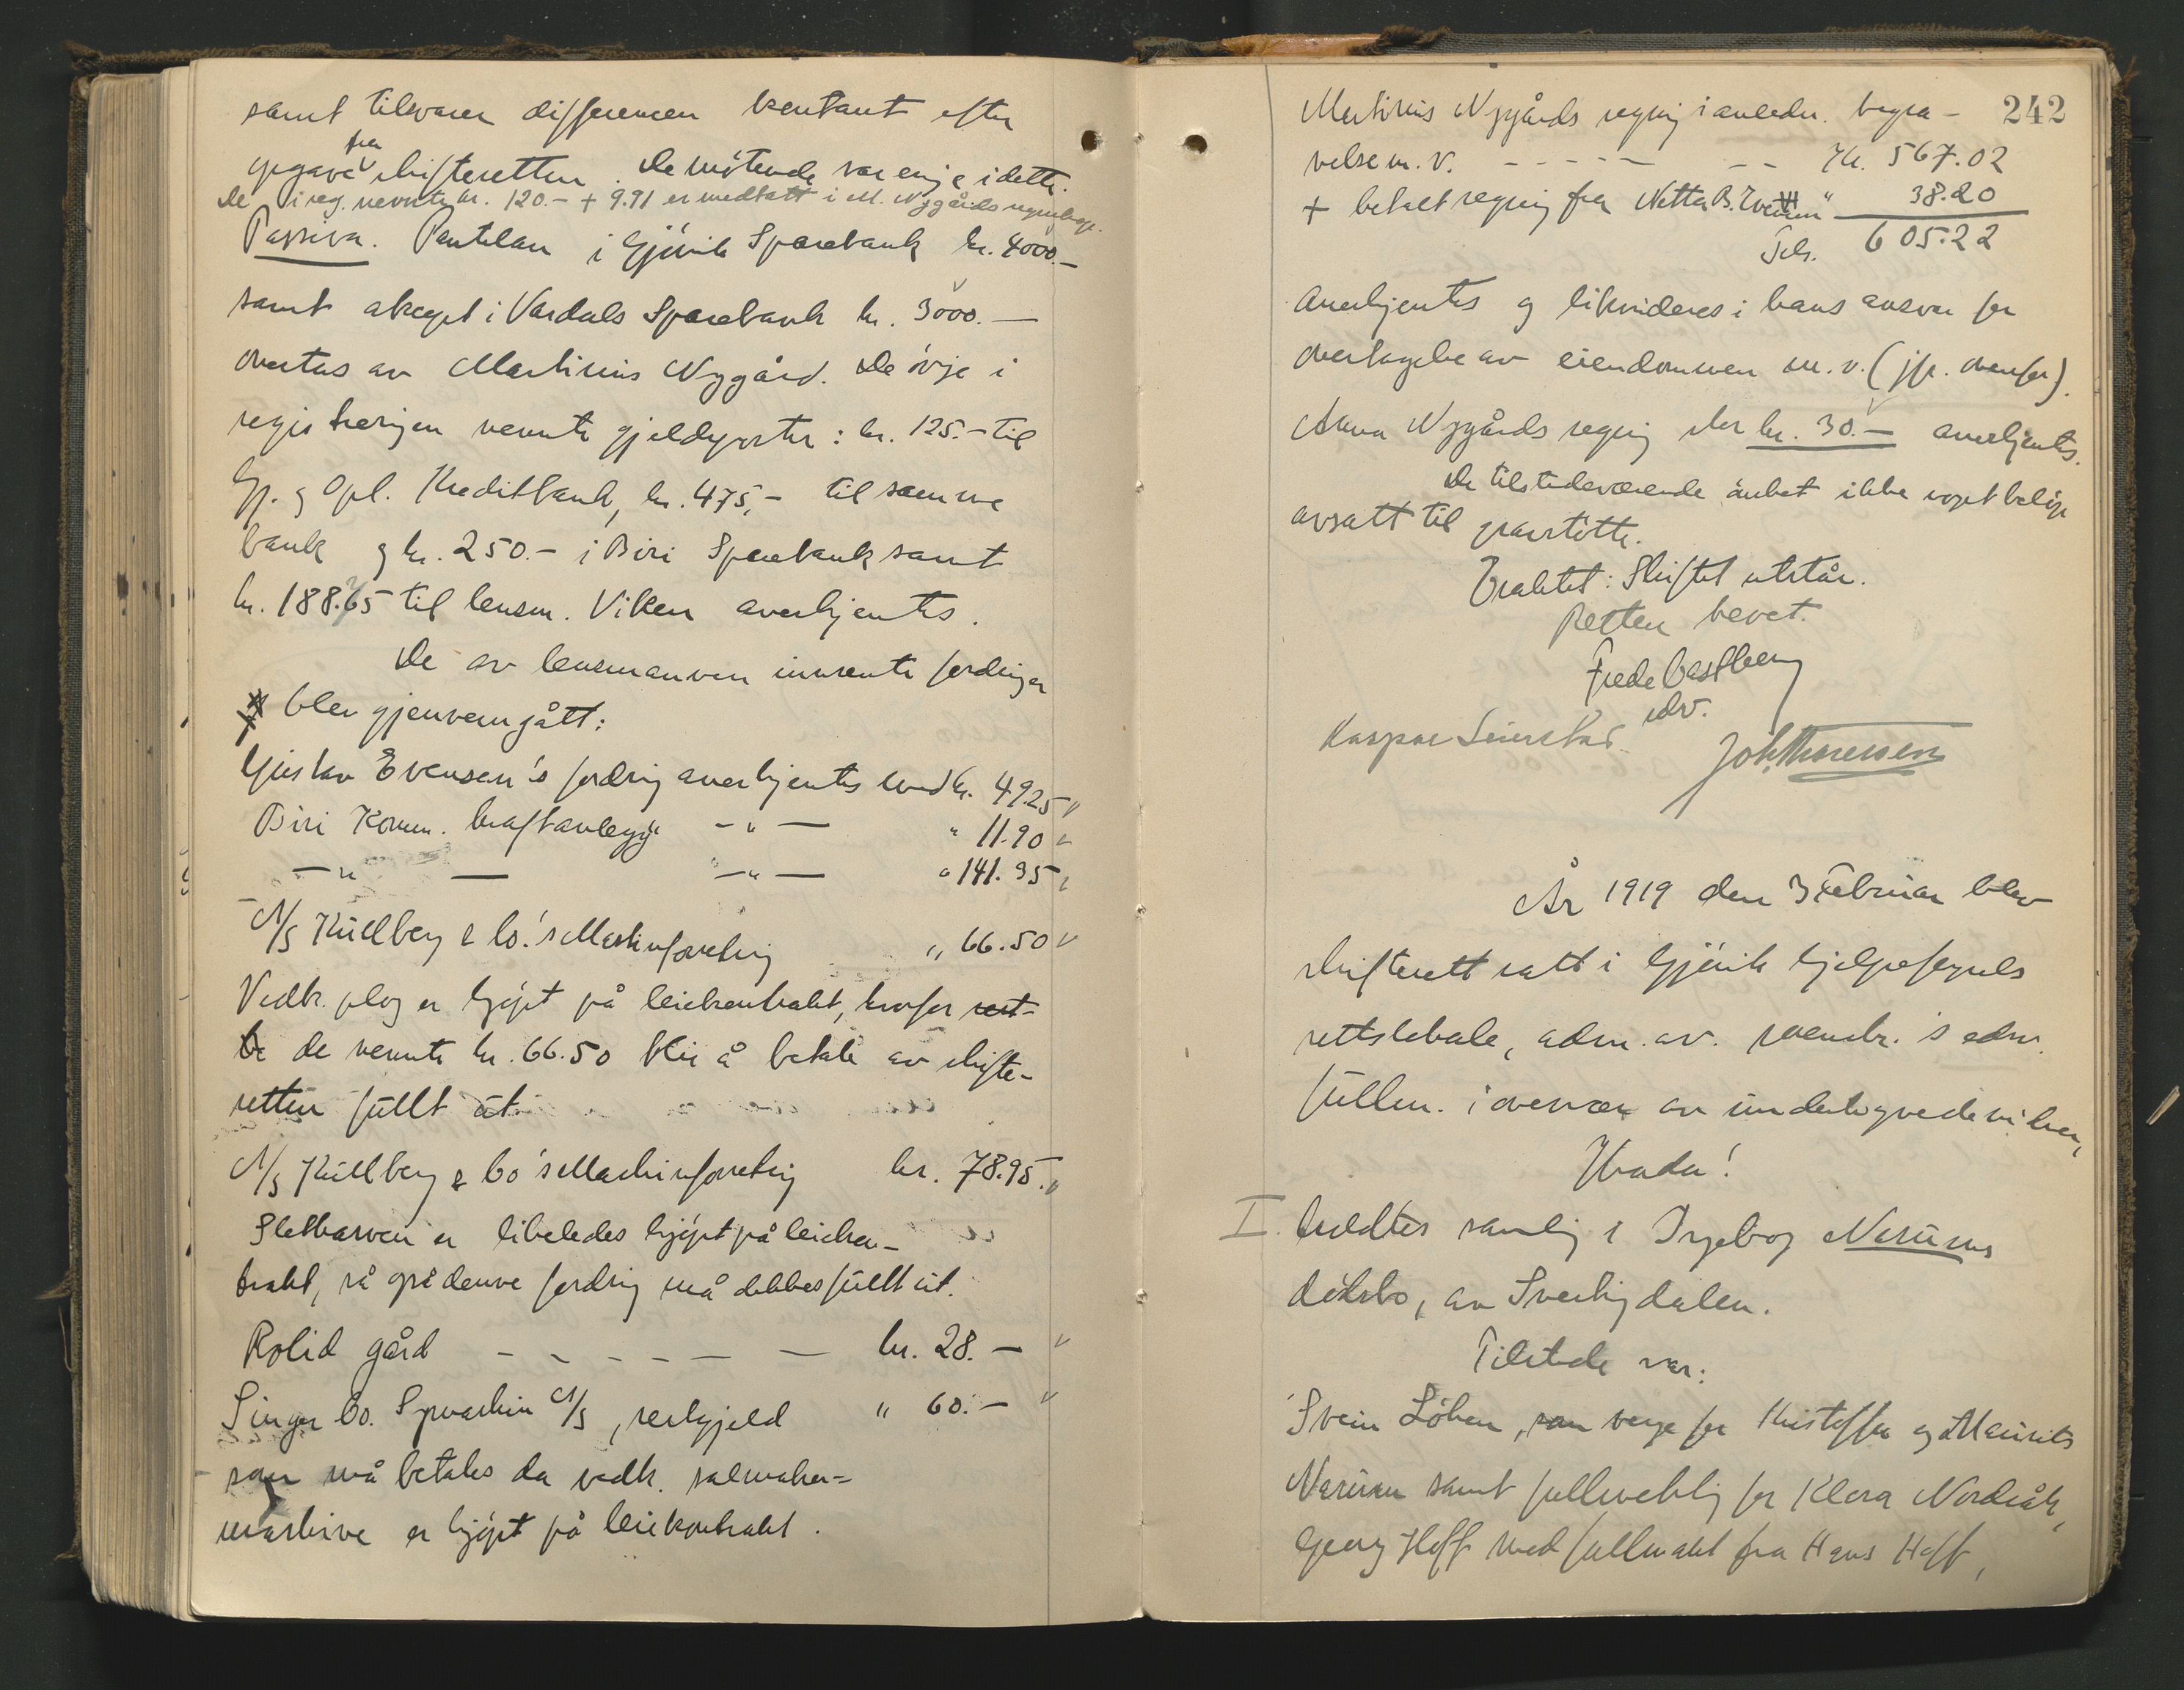 samt tilsvarer differencen kontant efter
opgave fra skifteretten. De møtende var enige i dette.
De i reg. nevnte kr. 120.- + 9.91 er medtatt i M. Nygårds regnskap.
Passiva. Pantelån i Gjøvik Sparebank kr. 4000.-
samt aksept i Vardals Sparebank kr. 3000.-
overtas av Martinius Nygård. De øvr. i
registreringen nevnte gjeldsposter: kr. 125.- til
Gj. og Opl. Kreditbank, kr. 475,- til samme
bank og kr. 250.- i Biri Sparebank samt
kr. 188.65 til lensm. Viken anerkjentes.
De av lensmannen innsente fordringer
blev gjennemgått:
Gustav Evensen's fordring anerkjentes med kr. 49.25 "
Biri Komm. kraftanlegg -"- " 11.90 "
-"- -"- " 141.95 "
A/S Küllberg & Co.'s Maskinforretning " 66.50 "
Vedk. plog er kjøpt på leiekontrakt, hvorfor rest-
de nevnte kr. 66.50 blir å betale av skifte-
retten fullt ut.
A/S Küllberg & Co's Maskinforretning kr. 78.95. "
Sletharven er likeledes kjøpt på leiekon-
trakt, så også denne fordring må dekkes fullt ut.
Rolid gård - - - - - - kr. 28.- "
Singer Co. Symaskin A/S, restgjeld " 60.- "
som må betales da vedk. salmaker-
maskine er kjøpt på leiekontrakt.
242
Martinius Nygårds regning i anledn. begra-
velse m. v. - - - - - - - Kr. 567.02
+ betalt regning fra Netta B. " 38.20
Tils. 605.22
anerkjentes og likvideres i hans ansvar for
overtagelse av eiendommen m. v. (jfr. ovenfor).
Anna Nygårds regning stor kr. 30.- anerkjentes.
De tilstedeværende ønsket ikke noget beløp
avsatt til gravstøtte.
Eraktet: Skiftet utstår.
Retten hevet.
Frede Castberg
edv.
Kaspar Seierstad Joh. Thoresen
År 1919 den 3 februar blev
skifterett satt i Gjøvik hjelpefengsels
rettslokale, adm. av sorenskr.'s edsv.
fullm. i overvær av undertegnede vidner,
Hvoda!
I. holdtes samling i Ingeborg Nerüms
dødsbo, av Sverligdalen.
Tilstede var:
Svein Løken, som verge for Kristoffer og Mauritz
Nerüm samt fullmektig for Klara Nordsåk,
Georg Hoff med fullmakt fra Hans Hoff,